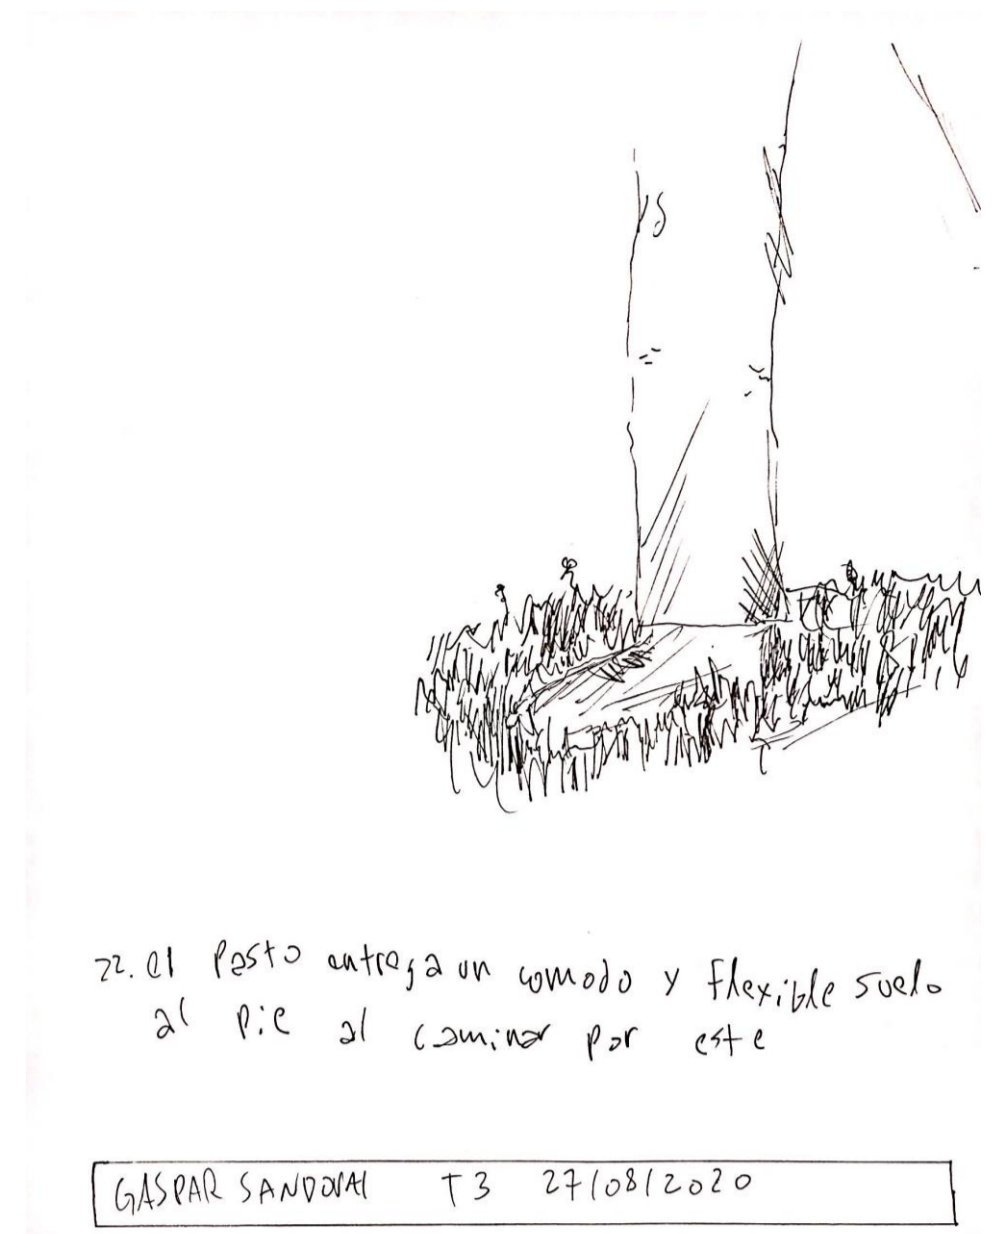 22. el Pasto entrega un comodo y flexible suelo
al pie al caminar por este
GASPAR SANDOVAl T3 27/08/2020